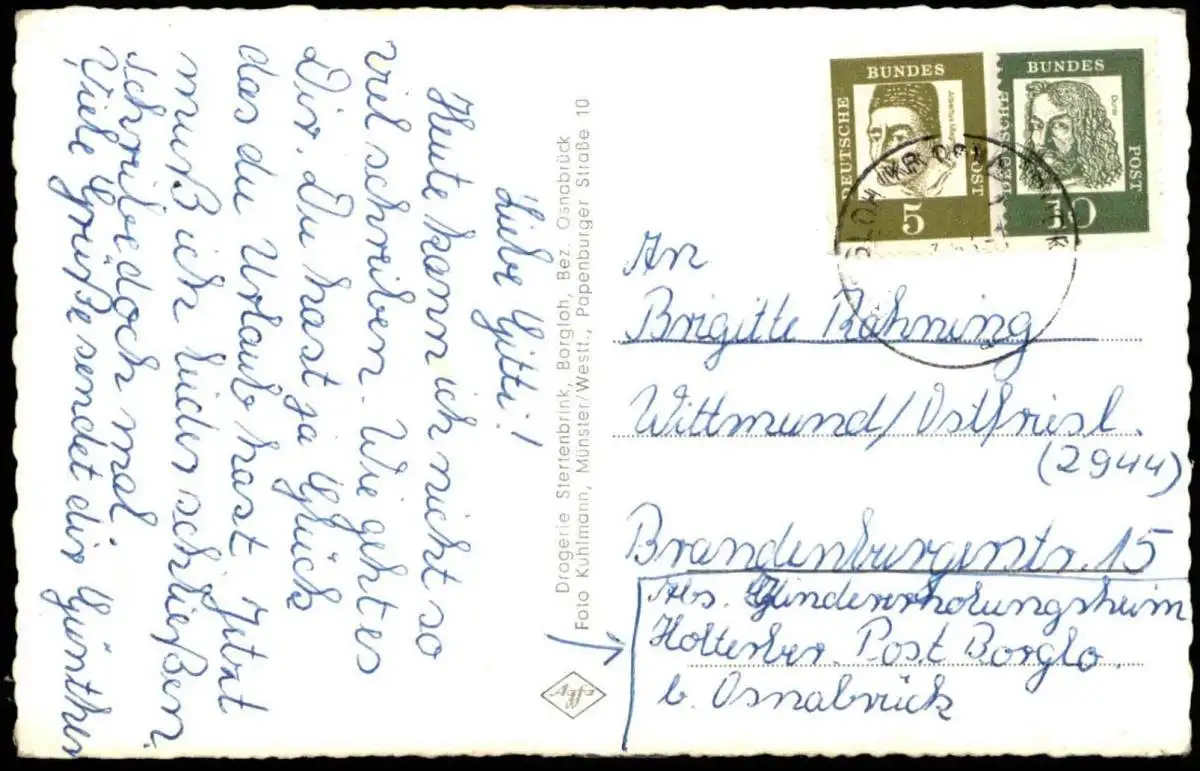 Liebe Gitti!
Heute kann ich nicht so
viel schreiben. Wie geht es
Dir. Du hast ja Glück
das du Urlaub hast. Jetzt
muß ich leider schließen.
schreibe doch mal
Viele Grüße sendet dir Günther
Drogerie Stertenbrink, Borgloh, Bez. Osnabrück
Foto Kuhlmann, Münster/Westf., Papenburger Straße 10
Agfa
BUNDES
DEUTSCHE
POST
Albertus Magnus
5
BUNDES
DEUTSCHE
POST
Dürer
10
An
Brigitte Röhning
Wittmund/Ostfriesl.
(2944)
Brandenburgerstr. 15
Abs. Kindererholungsheim
Holterber. Post Borglo.
b. Osnabrück